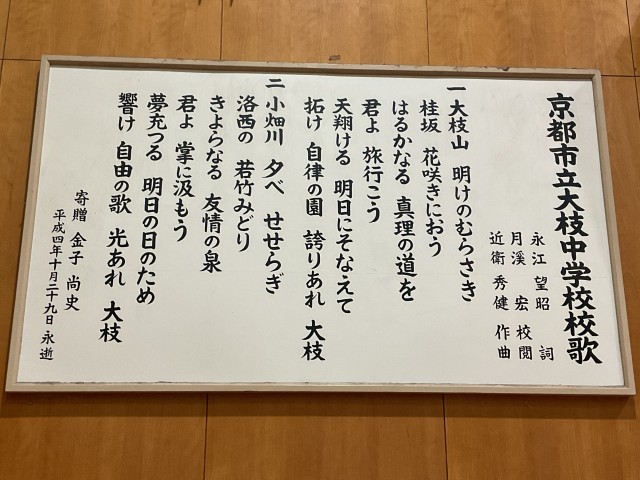 京都市立大枝中学校校歌
永江 望昭 詞
月溪 宏 校閲
近衛 秀健 作曲
一 大枝山 明けのむらさき
桂坂 花咲きにおう
はるかなる 真理の道を
君よ 旅行こう
天翔ける 明日にそなえて
拓け 自律の園 誇りあれ 大枝
二 小畑川 夕べ せせらぎ
洛西の 若竹みどり
きよらなる 友情の泉
君よ 掌に汲もう
夢充つる 明日の日のため
響け 自由の歌 光あれ 大枝
寄贈 金子 尚史
平成四年十月二十九日 永逝